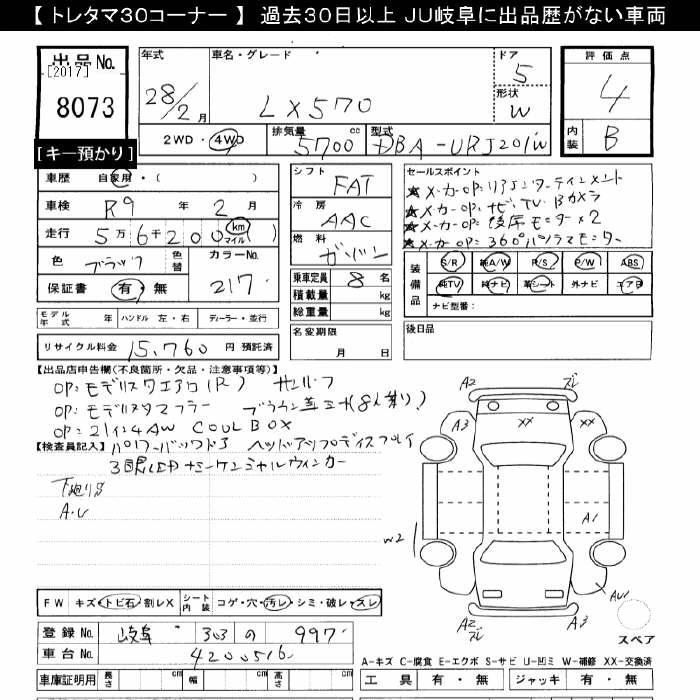 【 トレタマ30コーナー 】 過去30日以上 JU岐阜に出品歴がない車両
出品No.
[2017]
8073
[キー預かり]
年式 28/2月
車名・グレード LX570
ドア 5
形状 W
2WD・4WD
排気量 5700cc
型式 DBA-URJ201W
評価点 4
内装 B
車歴 自家用・( )
車検 R9年2月
走行 5万6千200 (km マイル)
色 ブラック 色替
カラーNo. 217
保証書 有・無
シフト FAT
冷房 AAC
燃料 ガソリン
乗車定員 8名
積載量 kg
総重量 kg
名変期限 月 日
セールスポイント
★メーカーOP:リアエンターテインメント
★メーカーOP:ナビTV Bカメラ
★メーカーOP:後席モニター×2
★メーカーOP:360°パノラマモニター
装備品
S/R 純A/W P/S P/W ABS
純TV 純ナビ 革シート 外ナビ エアB
ナビ型番:
後日品
モデル年式 年 ハンドル 左・右 ディーラー・並行
リサイクル料金 15,760円 預託済
【出品店申告欄(不良箇所・欠品・注意事項等)】
OP:モデリスタエアロ(R) サンルーフ
OP:モデリスタマフラー ブラウン革シート(8人乗り)
OP:21インチAW COOL BOX
【検査員記入】 パワーバックドア ヘッドアップディスプレイ
3眼LED シーケンシャルウィンカー
下廻りS
A.U
A2
A3
XX
XX
A1
W2
AU1
A2
A3
スペア
FW キズ・トビ石・割レX
シート内装 コゲ・穴・汚レ・シミ・破レ・スレ
登録No. 岐阜 303 の 997
車台No. 4200516
A-キズ C-腐食 E-エクボ S-サビ U-凹ミ W-補修 XX-交換済
車庫証明用 長さ cm 幅 cm 高さ cm
工具 有・無 ジャッキ 有・無